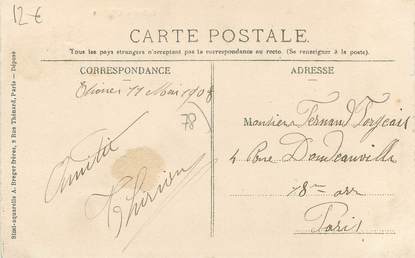 12 €
CARTE POSTALE.
Tous les pays étrangers n'acceptent pas la correspondance au recto. (Se renseigner à la poste).
CORRESPONDANCE
11 Mai 1908
78
Amitié
Thirion
ADRESSE
Monsieur Fernand
4 Rue
18me arr
Paris
Simi-aquarelle A. Breger Frères, 9 Rue Thénard, Paris — Déposé